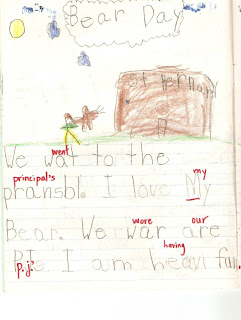 Bear Day
St Bernard
went
We wat to the
principal's my
pransbl. I love My
wore our
Bear. We war are
having
P.Js. I am heavi fun.
p.j.'